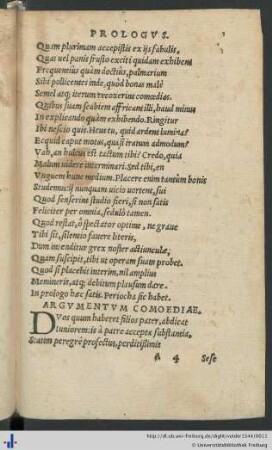 PROLOGVS.
Quam plurimam accepistis ex ijs fabulis,
Quas uel panis frusto exciti quidam exhibent
Frequentius quàm doctius, palmarium
Sibi pollicentes inde, quòd bonas malè
Semel atq; iterum recoxerint comœdias.
Quibus suam scabiem affricant illi, haud minus
In explicando quàm exhibendo. Ringitur
Ibi nescio quis. Heus tu, quid ardent lumina?
Ecquid caput motus, quasi iratum admolum?
Vah, an hulcus est tactum tibi? Credo, quia
Malum uidere intermineri. Sed tibi, en
Vnguem hunc medium. Placere enim tantùm bonis
Studemus: si nunquam uicio uortent, sui
Quod senserint studio fieri, si non satis
Feliciter per omnia, sedulò tamen.
Quod restat, ô spectator optime, ne graue
Tibi sit, silentio fauere literis,
Dum inuenditur grex noster actiuncula,
Quam suscipit, tibi ut operam suam probet.
Quod si placebit interim, nil amplius
Memineris, atq; debitum plausum dare.
In prologo hæc satis. Periocha sic habet.
ARGVMENTVM COMOEDIAE.
DVos quum haberet filios pater, abdicat
Iuniorem: is à patre accepta substantia,
Statim peregrè profectus, perditissimis
A 4 Sese
http://dl.ub.uni-freiburg.de/diglit/voider1544/0012
© Universitätsbibliothek Freiburg